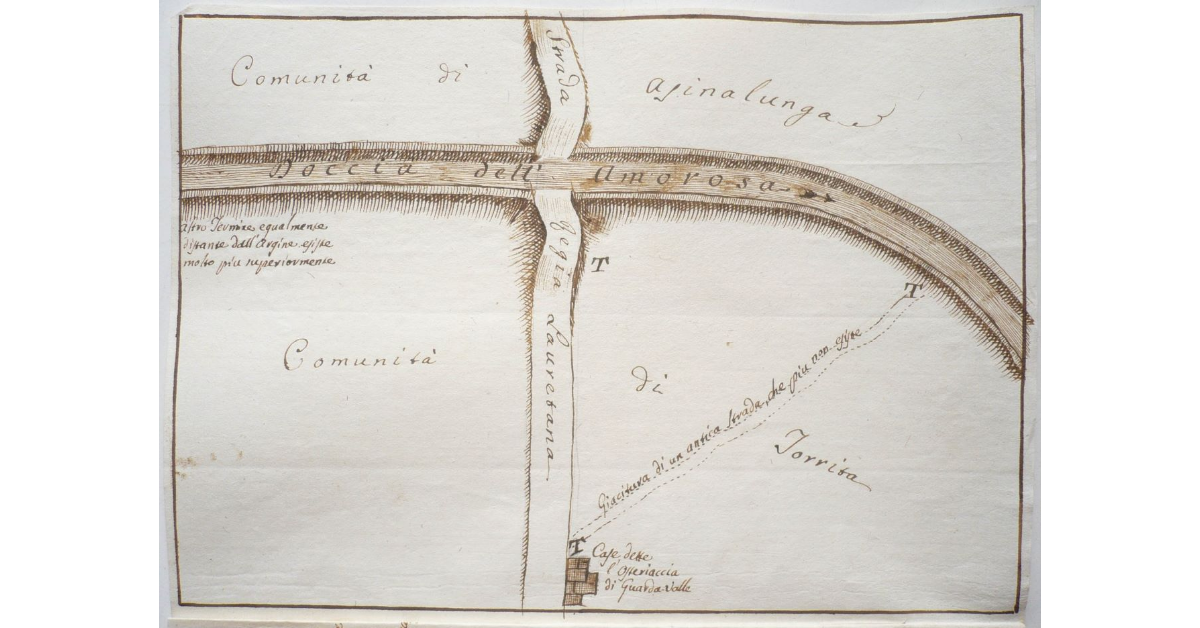 Comunità di Asinalunga
Strada Regia Lauretana
Doccia dell' Amorosa
altro Termine egualmente
distante dall'Argine esiste
molto più superiormente
T
T
Comunità di Torrita
Giacitura di un antica strada, che più non esiste
T
Case dette
l'Osteriaccia
di Guarda Valle